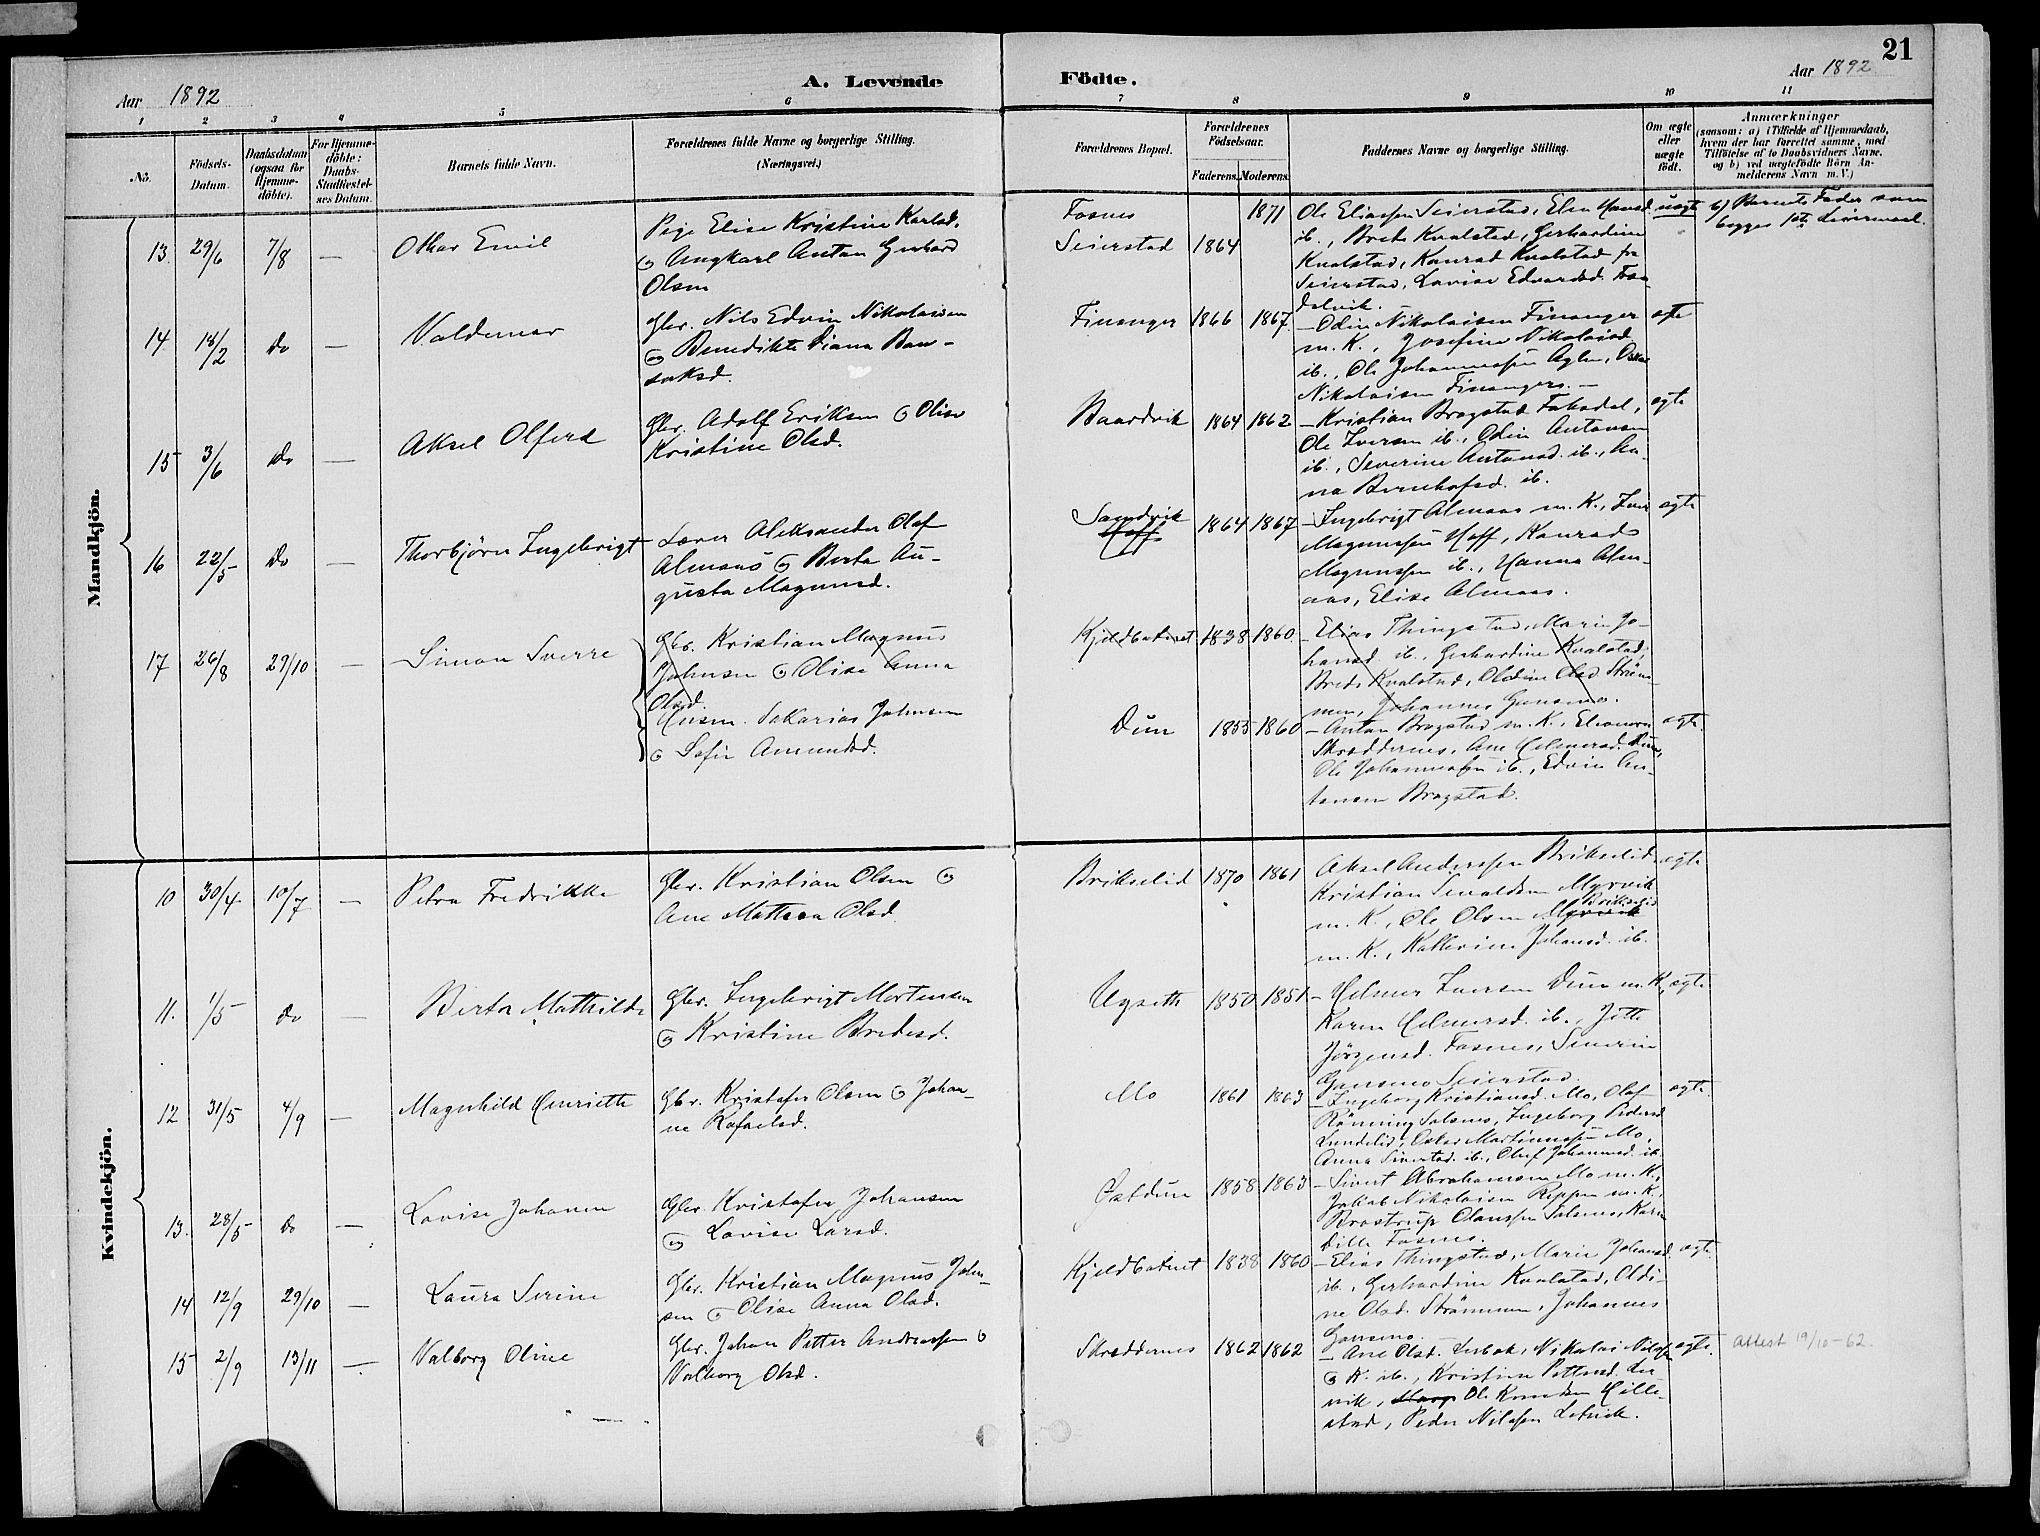 21
Aar 1892
A. Levende
Födte.
Aar 1892
1 2 3 4 5 6 7 8 9 10 11
No.
Födsels-
Datum.
Daabsdatum
(ogsaa for
Hjemme-
döbte).
For Hjemme-
döbte:
Daabs-
Stadfæstel-
ses Datum.
Barnets fulde Navn.
Forældrenes fulde Navne og borgerlige Stilling.
(Næringsvei.)
Forældrenes Bopæl.
Forældrenes
Födselsaar.
Faderens. Moderens.
Faddernes Navne og borgerlige Stilling.
Om ægte
eller
uægte
födt.
Anmærkninger
(saasom: a) i Tilfælde af Hjemmedaab,
hvem der har forrettet samme, med
Tilföielse af to Daabsvidners Navne,
og b) ved uægtefödte Börn An-
melderens Navn m. V.)
Mandkjön.
13. 29/6 7/8 — Othar Emil
Pige Elise Kristine Karlsd.
Angkarl Anton Gerhard
Olsen
Fosnes 1871
Seierstad 1864
Ole Eliassen Seierstad, Elen Hansd. uægte
ib., Brede Kvalstad, Gerhardine
Kvalstad, Konrad Kvalstad fra
Seierstad, Lovise Edvardsd. Faa-
dalvik.
b) Barnets Fader som
begges 1ste Leiermaal.
14. 18/2 Do — Valdemar
Gbr. Nils Edvin Nikolaisen
Benedikte Diana Ban-
saksd.
Finanger 1866 1867
— Odin Nikolaisen Finanger ægte
m. K., Josefine Nikolaisd.
ib., Ole Johannessen Aglen, Oskar
Nikolaisen Finanger. —
15 3/6 Do — Aksel Olferd
Gbr. Adolf Eriksen Olise
Kristine Olsd.
Baardvik 1864 1862
— Kristian Bragstad Faksdal, ægte
Ole Iversen ib., Odin Antonsen
ib., Severine Antonsd. ib., An-
na Bernhofsd. ib.
16 22/5 Do — Thorbjörn Ingebrigt
Lærer Aleksander Olaf
Almaas Berta Au-
gusta Magnusd.
Sandvik
Hoff
1864 1867
— Ingebrigt Almaas m. K., Iver ægte
Magnussen Hoff, Konrad
Magnussen ib., Hanna Alm-
aas, Elise Almaas.
17 26/8 29/10 — Simon Sverre
Gbr. Kristian Magnus
Johnsen Olise Anna
Olsd.
Husm. Sakarias Johnsen
Sofie Amundsd.
Kjeldbotnet 1838 1860.
— Elias Thingstad, Marie Jo-
hansd. ib., Gerhardine Kvalstad,
Brede Kvalstad, Oldine Olsd. Ström-
men, Johannes Gansmo.
Dun 1855 1860
— Anton Bragstad m. K., Eleonora ægte.
Skræddernes, Ane Helmersd. Dun,
Ole Johannessen ib., Edvin An-
tonsen Bragstad.
Kvindekjön.
10 30/4 10/7 — Petra Fredrikke
Gbr. Kristian Olsen
Ane Mattea Olsd.
Brikselid 1870 1861
Aksel Anderssen Brikselid ægte
Kristian Sevaldsen Myrvik
Brikselid
m. K., Ole Olsen Myrvik
m. K., Katherine Johansd. ib.
11. 1/5 Do — Berta Mathilde
Gbr. Ingebrigt Mortensen
Kristine Bredesd.
Ugseth 1850 1851
— Helmer Iversen Dun m. K., ægte
Karen Helmersd. ib., Jette
Jörgensd. Fosnes, Severin
Gansmo Seierstad.
12 31/5 4/9 — Magnhild Henriette
Gbr. Kristofer Olsen Johan-
ne Rafaelsd.
Mo 1861 1863
— Ingeborg Kristiansd. Mo, Olaf ægte.
Rönning Salsnes, Ingeborg Pedersd.
Lundelid, Oskar Martinussen Mo,
Anna Sivertsd. ib., Oluf Johannesd. ib.
13. 28/5 Do — Lovise Johanne
Gbr. Kristofer Johansen
Lovise Larsd.
Østdun 1858 1863
— Sivert Abrahamsen Mo m. K.,
Jakob Nikolaisen Reppen m. K.,
Brostrup Olaussen Salsnes, Karen
Dille Fosnes.
14 12/9 29/10 — Laura Serine
Gbr. Kristian Magnus John-
sen Olise Anna Olsd.
Kjeldbotnet 1838 1860
— Elias Thingstad, Marie Johansd. ægte.
ib., Gerhardine Kvalstad, Oldi-
ne Olsd. Strömmen, Johannes
Gansmo.
15 2/9 13/11 — Valborg Oline
Gbr. Johan Petter Andreassen
Valborg Olsd.
Skræddernes 1862 1862
— Ane Olsd. Lubak, Nikolai Nilssen ægte.
K. ib., Kristine Pettersd. Lu-
vik, Ole Knudsen Hille-
stad, Peder Nilssen Letvik.
Attest 19/10-62.